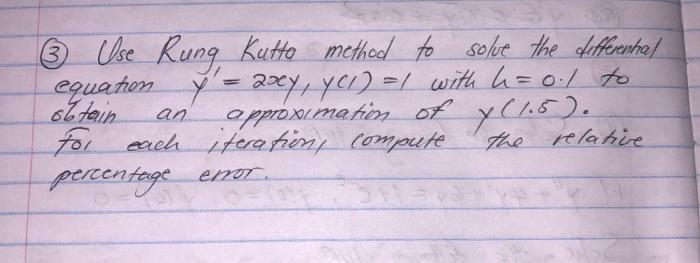 ③ Use Rung Kutta method to solve the differential
equation y' = 2xy, y(1) = 1 with h = 0.1 to
obtain an approximation of y(1.5).
For each iteration, compute the relative
percentage error.